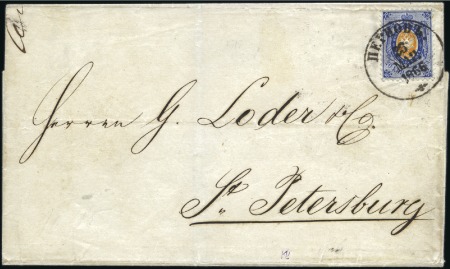 ПЕРНОВЪ
1866
Herren G. Loder & Co.
St. Petersburg